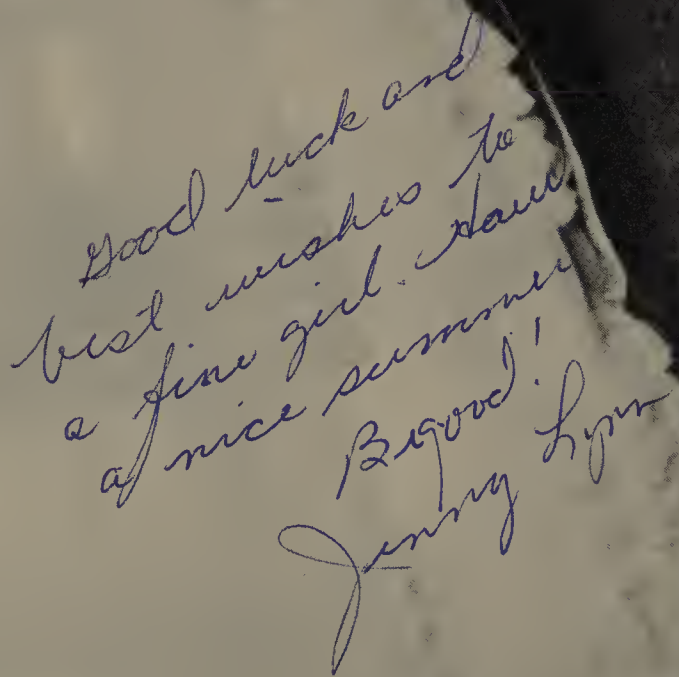 Good luck and
best wishes to
a fine girl. Have
a nice summer
Be good!
Jenny Lynn